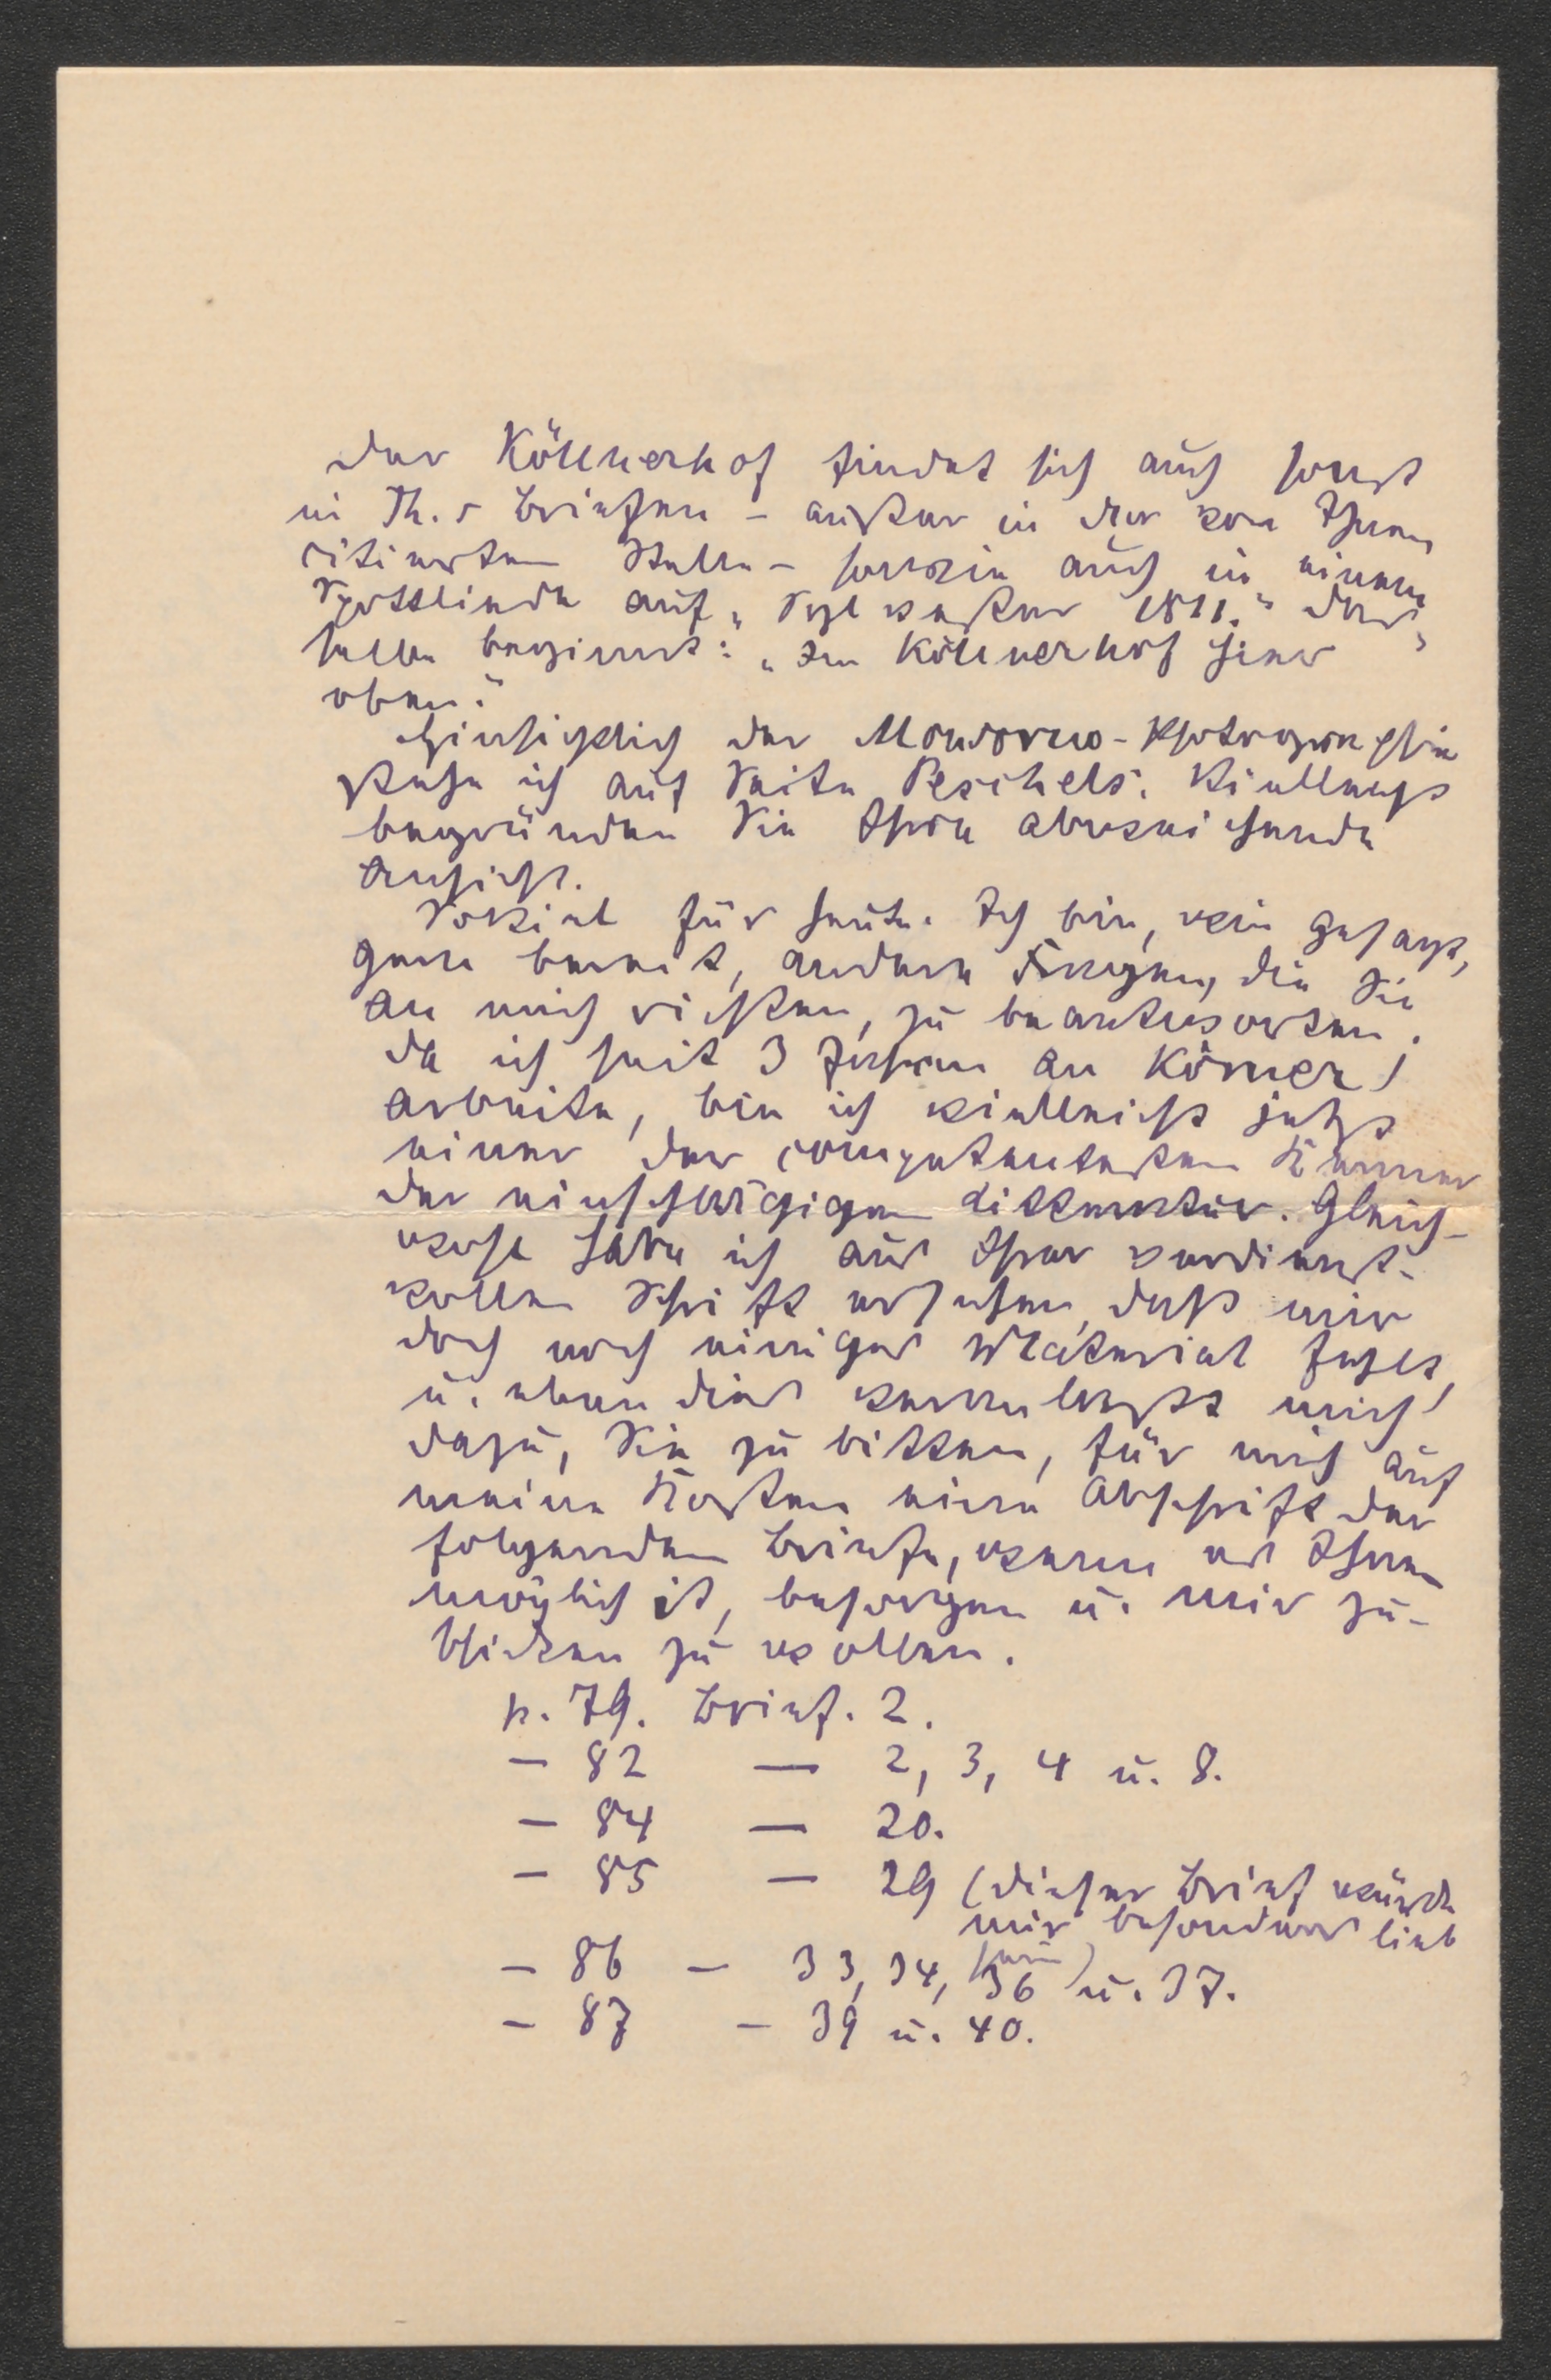 Der Köllnerhof findet sich auch sonst
in Th.s Briefen – ausser in der von Ihnen
citierten Stelle – sowie auch in einem
Spottliede auf „Sylvester 1811.“ Das-
selbe beginnt: „Im Köllnerhof hier
oben.“
Hinsichtlich der Photographie
stehe ich auf Seite Peschels. Vielleicht
begründen Sie Ihre abweichende
Ansicht.
Soviel für heute. Ich bin, wie gesagt,
gern bereit, andere Fragen, die Sie
an mich richten, zu beantworten.
Da ich seit 3 Jahren an Körner
arbeite, bin ich vielleicht jetzt
einer der competentesten Kenner
der einschlägigen Litteratur. Gleich-
wohl habe ich aus Ihrer verdienst-
vollen Schrift ersehen, dass mir
doch noch einiges Material fehlt,
u. eben dies veranlasst mich
dazu, Sie zu bitten, für mich auf
meine Kosten eine Abschrift der
folgenden Briefe, wenn es Ihnen
möglich ist, besorgen u. mir zu-
schicken zu wollen.
p. 79. Brief. 2.
– 82 — 2, 3, 4 u. 8.
– 84 — 20.
– 85 — 29 (dieser Brief würde
mir besonders lieb
sein)
– 86 – 33, 34, 36 u. 37.
– 87 – 39 u. 40.